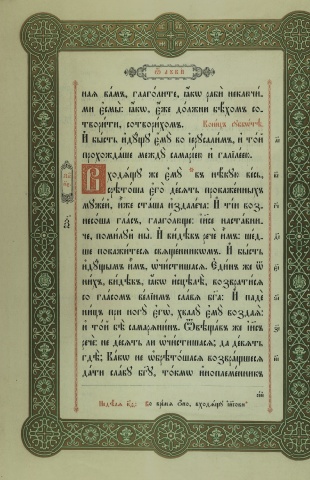 Ѿ лꙋкѝ
наѧ вамъ, глаголите, ꙗкѡ раби неключи-
ми есмы: ꙗкѡ, еже должни бѣхомъ со-
творити, сотворихомъ. Конецъ сꙋббѡтѣ.
И бысть идꙋщꙋ емꙋ во іерꙋсалимъ, и той
прохождаше междꙋ самаріею и галілеею.
Входѧщꙋ же емꙋ въ нѣкꙋю весь,
срѣтоша его десѧть прокаженныхъ
мꙋжей, иже сташа издалеча: И тіи воз-
несоша гласъ, глаголюще: іисе наставни-
че, помилꙋй ны. И видѣвъ рече имъ: шед-
ше покажитесѧ свѧщенникѡмъ. И бысть
идꙋщымъ имъ, ѡчистишасѧ. Единъ же ѿ
нихъ, видѣвъ, ꙗкѡ исцѣлѣ, возвратисѧ
со гласомъ веліимъ славѧ бга: И паде
ницъ при ногꙋ егѡ, хвалꙋ емꙋ воздаѧ:
и той бѣ самарѧнинъ. Ѿвѣщавъ же іисъ
рече: не десѧть ли ѡчистишасѧ; да девѧть
гдѣ; Какѡ не ѡбрѣтошасѧ возвращшесѧ
дати славꙋ бгꙋ, токмѡ иноплеменникъ
во времѧ ѻно, входѧщꙋ іисови